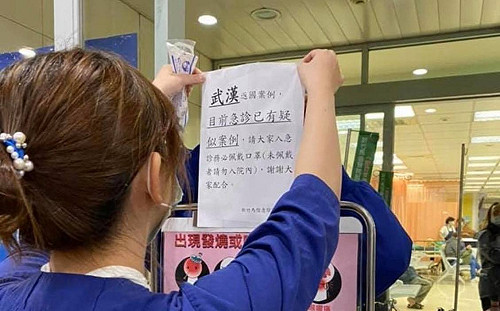 武漢返國案例，
目前急診已有疑
似案例，請大家入急
診務必佩戴口罩(未佩戴
者請勿入院內)，謝謝大
家配合。
出現發燒或